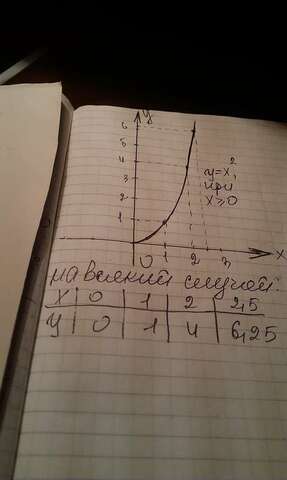 y
6
5
4
3
2
1
y=x²,
при
x≥0
0 1 2 3 x
на всякий случай:
x 0 1 2 2,5
y 0 1 4 6,25